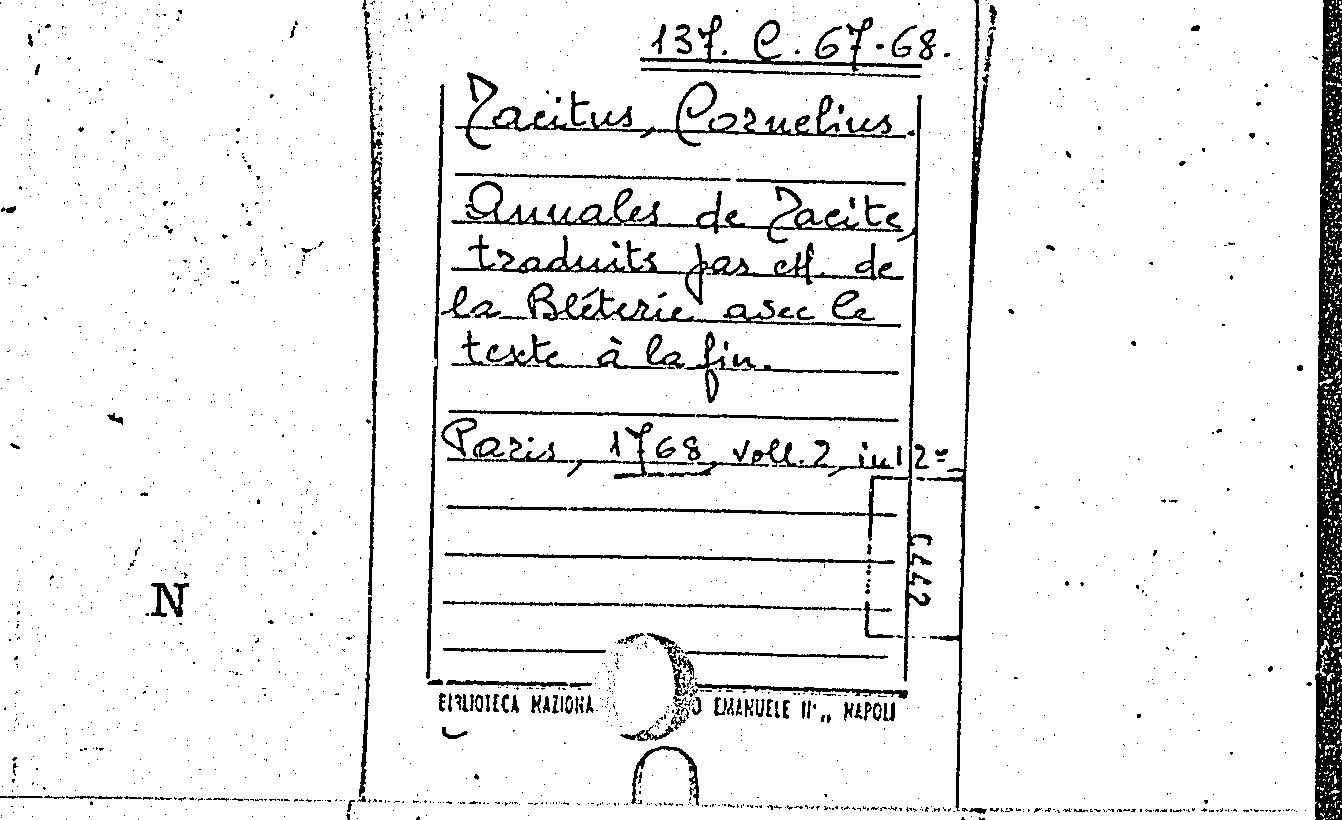 137. C. 67-68.
Tacitus, Cornelius.
Annales de Tacite,
traduits par M. de
la Bléterie avec le
texte à la fin.
Paris, 1768, voll. 2, in 12º
N
BIBLIOTECA NAZIONA O EMANUELE II", NAPOLI